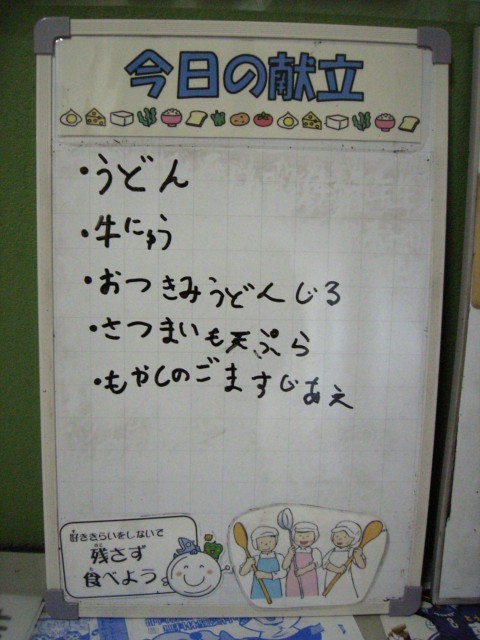 今日の献立
・うどん
・牛にゅう
・おつきみうどんじる
・さつまいも天ぷら
・もやしのごますじあえ
好ききらいをしないで
残さず
食べよう。